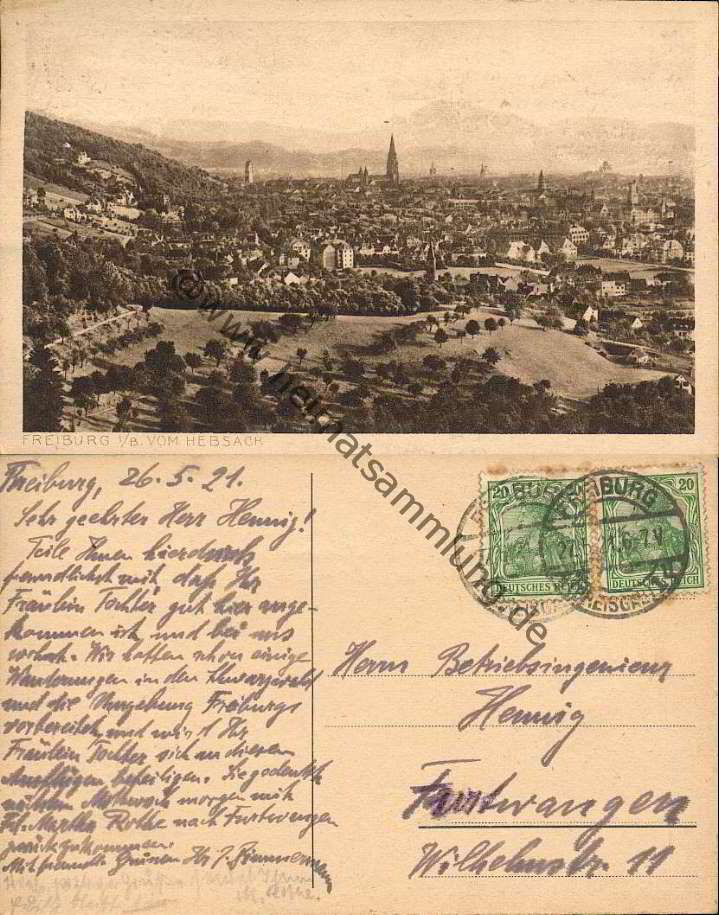 FREIBURG i/B. VOM HEBSACK
© www.heimatsammlung.de
Freiburg, 26.5.21.
Sehr geehrter Herr Hennig!
Teile Ihnen hierdurch
freundlichst mit, daß Ihr
Fräulein Tochter gut hier ange-
kommen ist, und bei uns
wohnt. Wir hatten schon einige
Wanderungen in den Schwarzwald
und die Umgebung Freiburgs
vorbereitet, und wird Ihr
Fräulein Tochter sich an diesen
Ausflügen beteiligen. Sie gedenkt
nächsten Mittwoch morgen mit
Frl. Martha Rothe nach Furtwangen
zurückzukommen.
Mit freundl. Grüssen Ihr
20 20
DEUTSCHES REICH DEUTSCHES REICH
FREIBURG FREIBURG
Herrn Betriebsingenieur
Hennig
Furtwangen
Wilhelmstr. 11